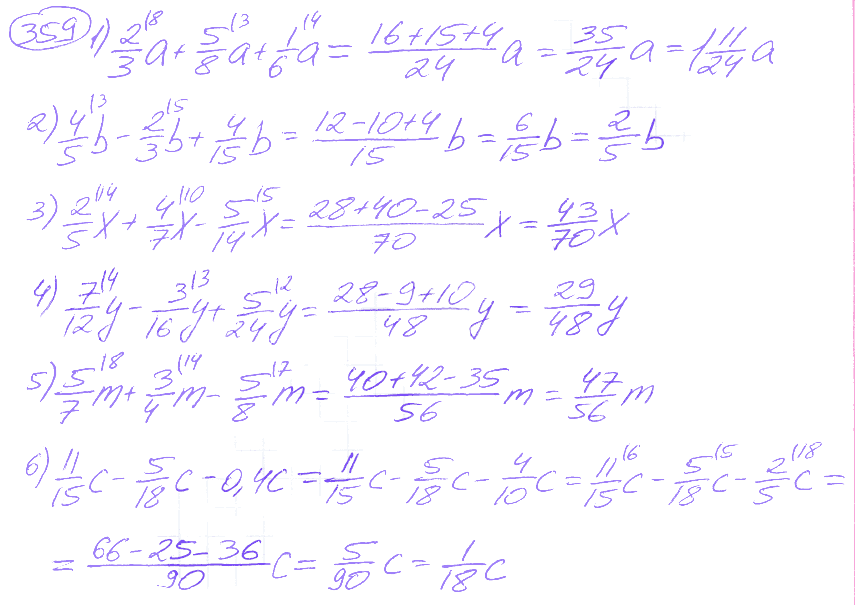 359 1) 2/3^\8 a + 5/8^\3 a + 1/6^\4 a = (16+15+4)/24 a = 35/24 a = 1 11/24 a
2) 4/5^\3 b - 2/3^\5 b + 4/15 b = (12-10+4)/15 b = 6/15 b = 2/5 b
3) 2/5^\14 x + 4/7^\10 x - 5/14^\5 x = (28+40-25)/70 x = 43/70 x
4) 7/12^\4 y - 3/16^\3 y + 5/24^\2 y = (28-9+10)/48 y = 29/48 y
5) 5/7^\8 m + 3/4^\14 m - 5/8^\7 m = (40+42-35)/56 m = 47/56 m
6) 11/15 c - 5/18 c - 0,4c = 11/15 c - 5/18 c - 4/10 c = 11/15^\6 c - 5/18^\5 c - 2/5^\18 c =
= (66-25-36)/90 c = 5/90 c = 1/18 c